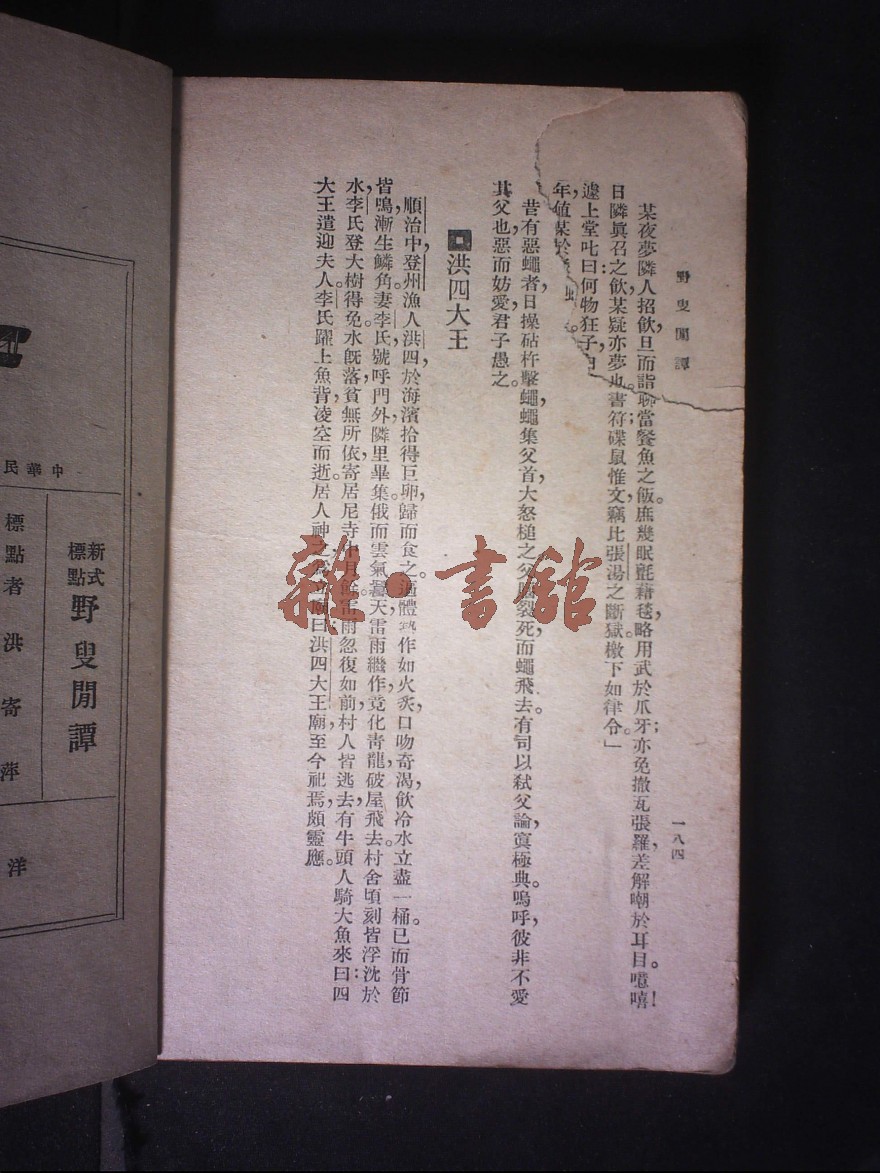 野叟閒譚
一八四
某夜夢隣人招飲,旦而詣聊當餐魚之飯。庶幾眠氈藉毯,略用武於爪牙;亦免撤瓦張羅,差解嘲於耳目。噫嘻!
日隣眞召之飲,某疑亦夢也書符磔鼠,惟文竊比張湯之斷獄,檄下如律令。」
遽上堂叱曰:何物狂子,
年値某於
昔有惡蠅者,日操砧杵擊蠅,蠅集父首,大怒槌之,父腦裂死,而蠅飛去。有司以弑父論,寘極典。嗚呼,彼非不愛
其父也,惡而妨愛,君子愚之。
洪四大王
順治中,登州漁人洪四,於海濱拾得巨卵,歸而食之。遍體作如火炙,口吻奇渴,飲冷水立盡一桶。已而骨節
皆鳴,漸生鱗角。妻李氏號呼門外,隣里畢集。俄而雲氣冪天,雷雨繼作,竟化靑龍,破屋飛去。村舍頃刻皆浮沈於
水,李氏登大樹得免。水旣落,貧無所依,寄居尼寺。十月餘,雷雨忽復如前,村人皆逃去,有牛頭人騎大魚來曰:四
大王遣迎夫人。李氏躍上魚背,凌空而逝。居人神之,爲立廟曰洪四大王廟,至今祀焉,頗靈應。
中華民
新式標點
野叟閒譚
標點者洪寄萍
洋
雜·書館